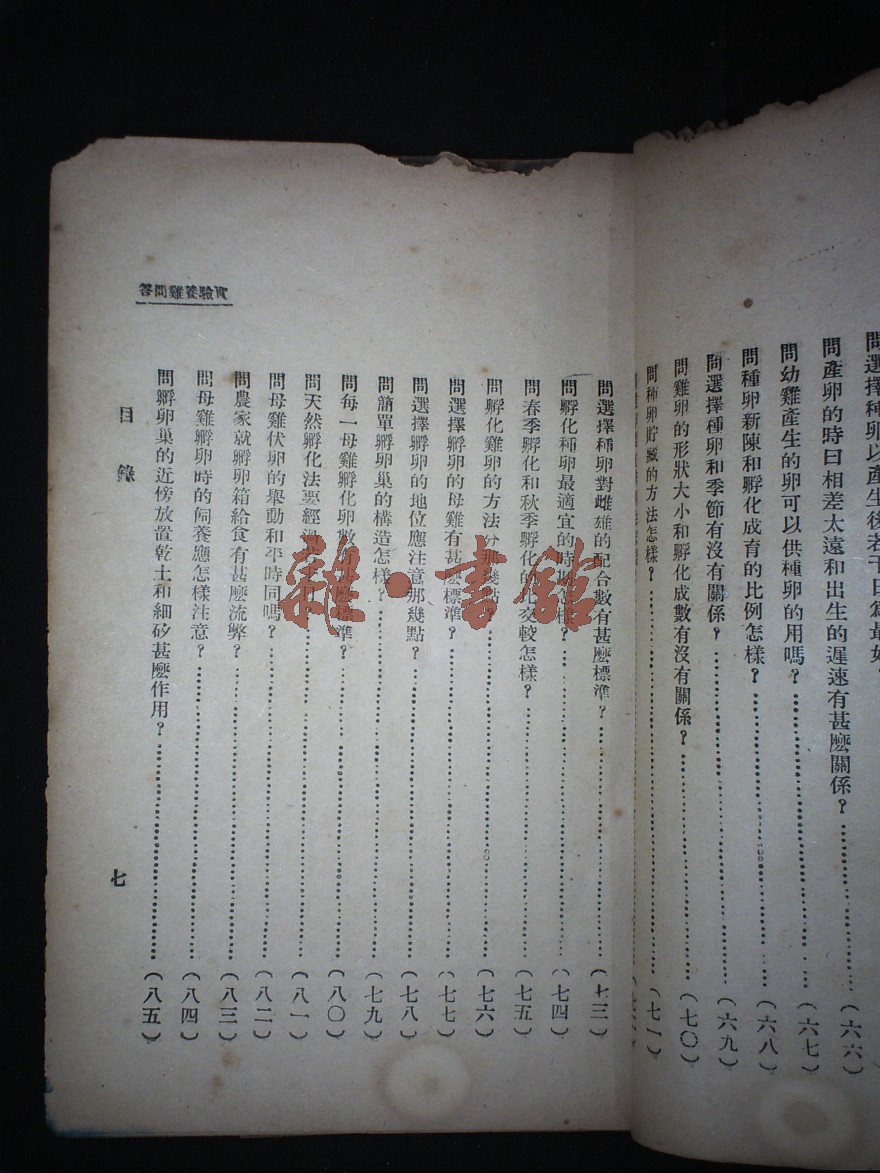 問選擇種卵以產生後若干日爲最好？
問產卵的時日相差太遠和出生的遲速有甚麼關係？(六六)
問幼雞產生的卵可以供種卵的用嗎？(六七)
問種卵新陳和孵化成育的比例怎樣？(六八)
問選擇種卵和季節有沒有關係？(六九)
問雞卵的形狀大小和孵化成數有沒有關係？(七〇)
問種卵貯藏的方法怎樣？(七一)
問選擇種卵對雌雄的配合數有甚麼標準？(七三)
問孵化種卵最適宜的時期怎樣？(七四)
問春季孵化和秋季孵化的比較怎樣？(七五)
問孵化雞卵的方法分那幾點？(七六)
問選擇孵卵的母雞有甚麼標準？(七七)
問選擇孵卵的地位應注意那幾點？(七八)
問簡單孵卵巢的構造怎樣？(七九)
問每一母雞孵化卵數有甚麼標準？(八〇)
問天然孵化法要經過(八一)
問母雞伏卵的舉動和平時同嗎？(八二)
問農家就孵卵箱給食有甚麼流弊？(八三)
問母雞孵卵時的飼養應怎樣注意？(八四)
問孵卵巢的近傍放置乾土和細砂甚麼作用？(八五)
實驗養雞問答
目錄
七
雜·書館